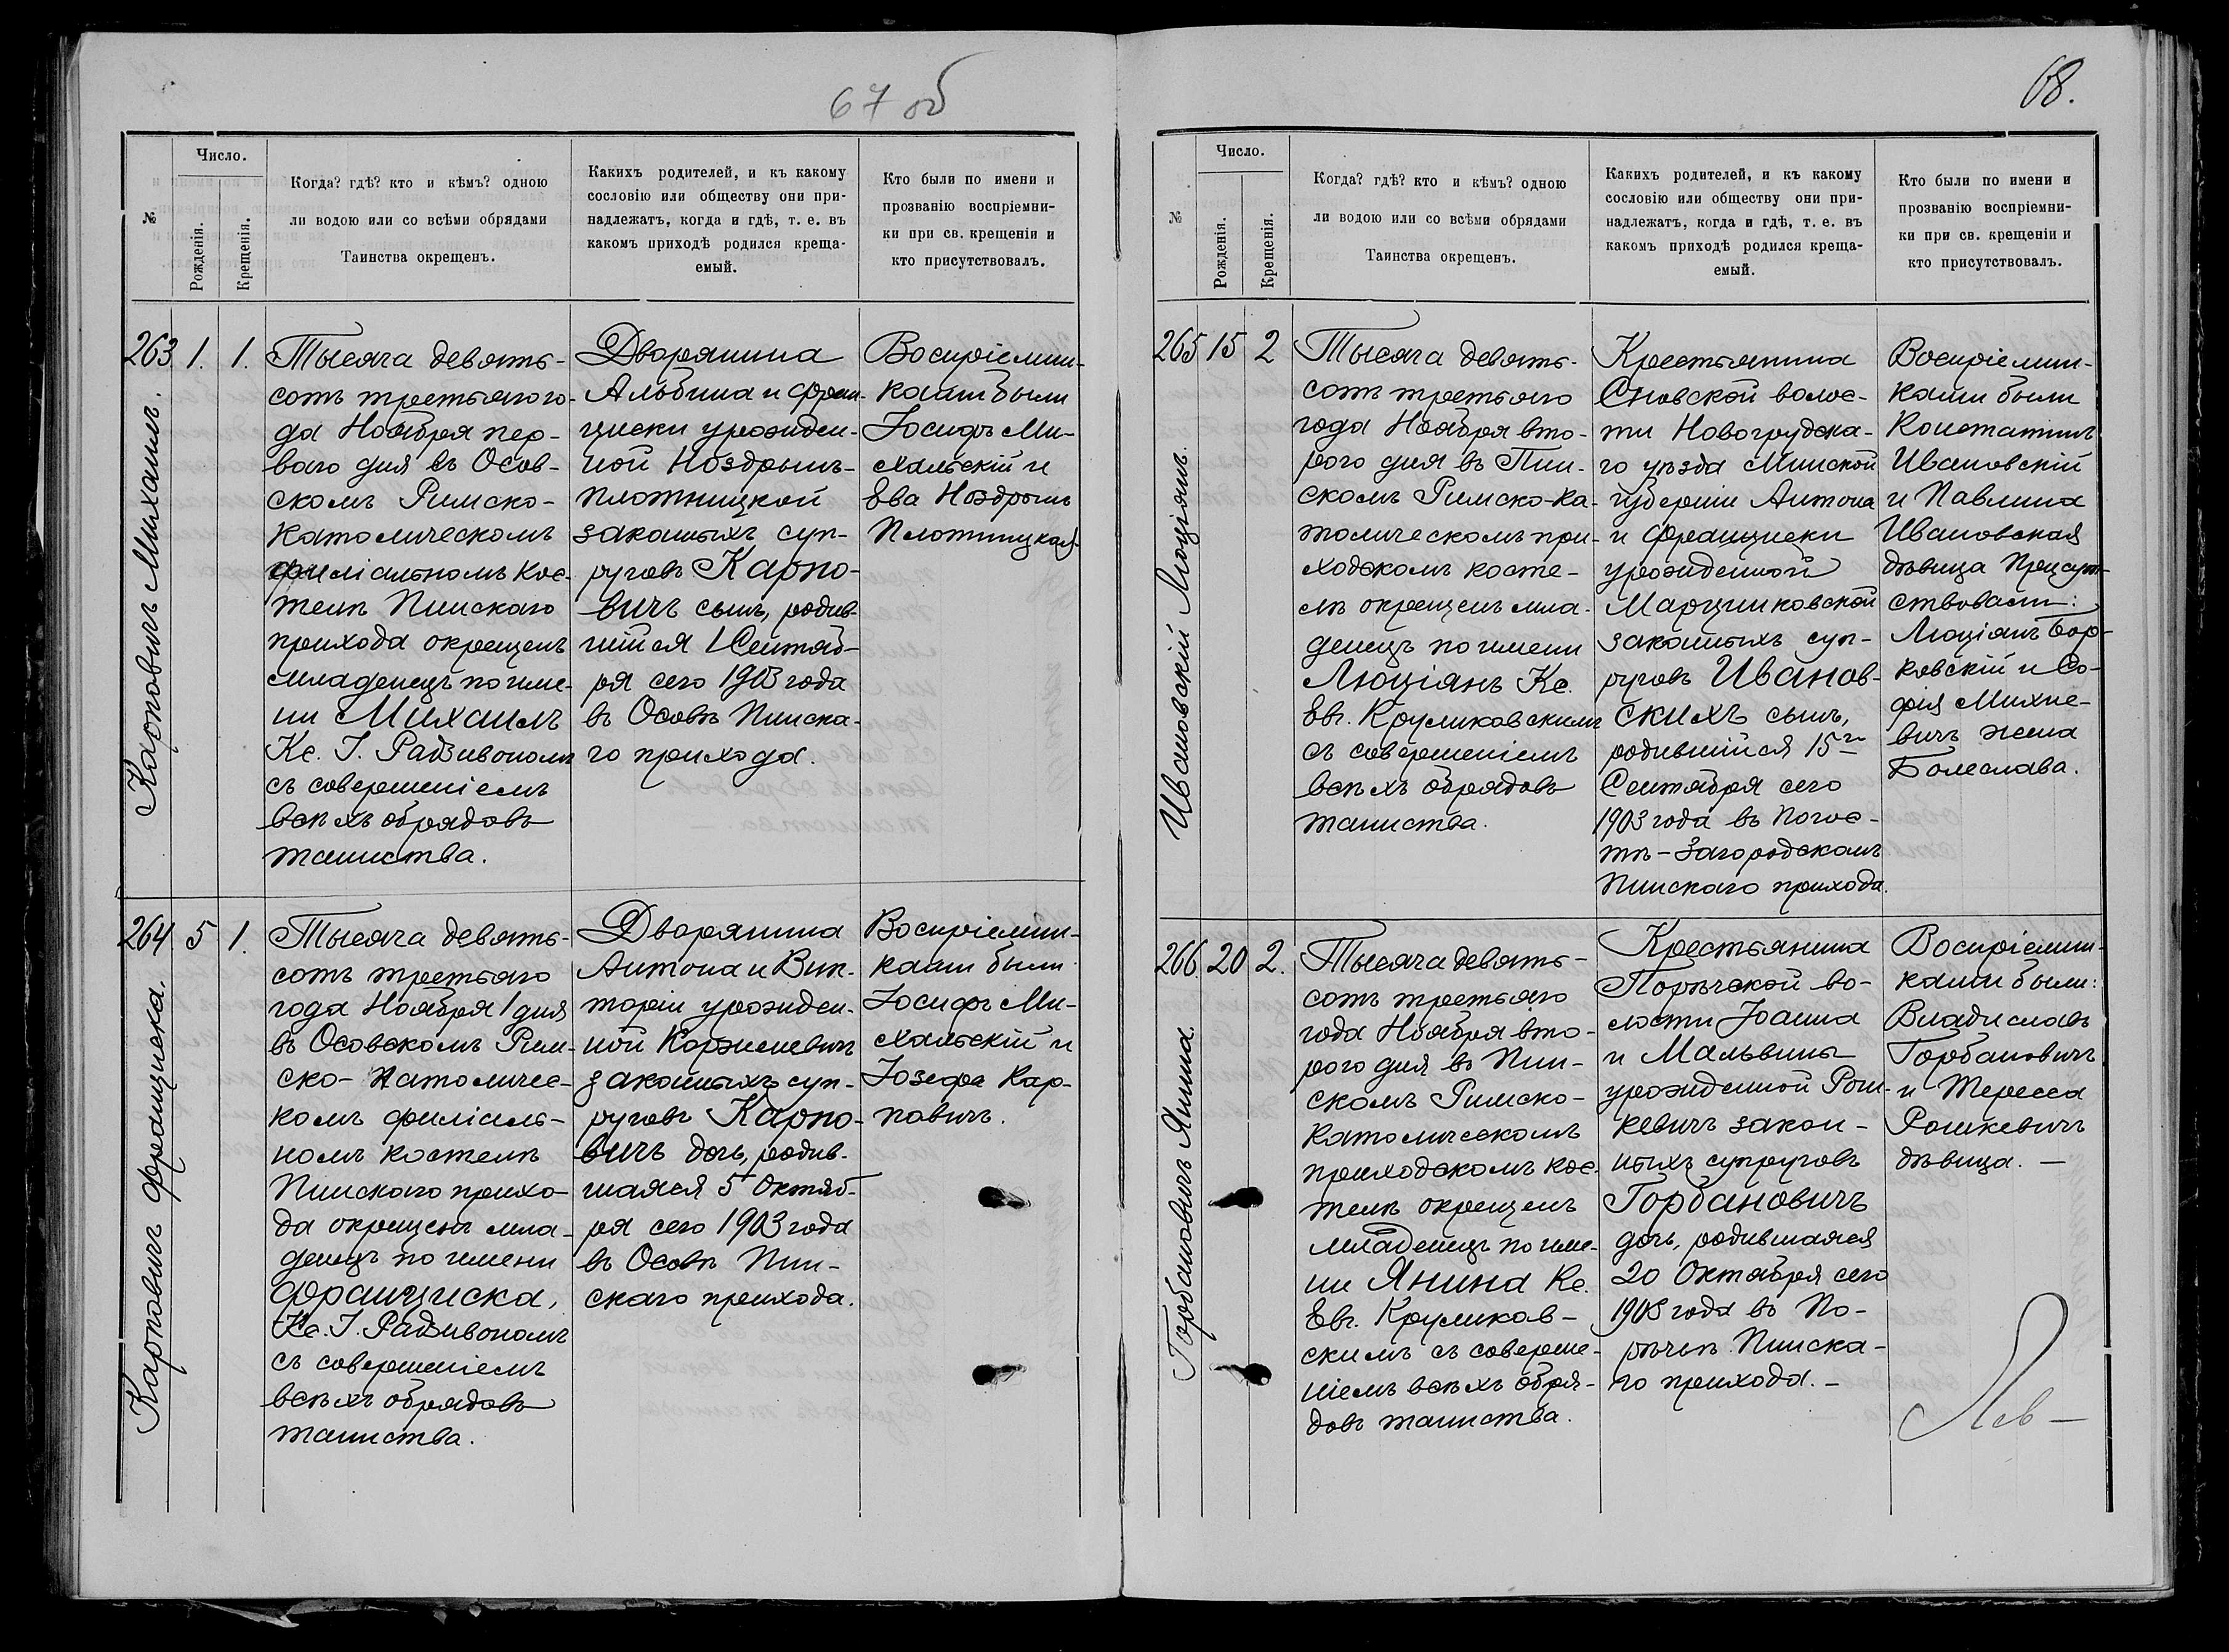 67 об
№
Число.
Рожденія.
Крещенія.
Когда? гдѣ? кто и кѣмъ? одною
ли водою или со всѣми обрядами
Таинства окрещенъ.
Какихъ родителей, и къ какому
сословію или обществу они при-
надлежатъ, когда и гдѣ, т. е. въ
какомъ приходѣ родился креща-
емый.
Кто были по имени и
прозванію воспріемни-
ки при св. крещеніи и
кто присутствовалъ.
263
Карповичъ Михаилъ.
1.
1.
Тысяча девять-
сотъ третьяго го-
да Ноября пер-
ваго дня въ Осов-
скомъ Римско-
Католическомъ
филіальномъ кос-
телѣ Пинскаго
прихода окрещенъ
младенецъ по име-
ни Михаилъ
Кс. I. Радзивономъ
съ совершеніемъ
всѣхъ обрядовъ
таинства.
Дворянина
Альбина и Фран-
циски урожден-
ной Ноздрынъ-
Плотницкой
законныхъ суп-
руговъ Карпо-
вичъ сынъ, родив-
шійся 1 Сентяб-
ря сего 1903 года
въ Осовѣ Пинска-
го прихода.
Воспріемни-
ками были
Іосифъ Ми-
хальскій и
Ева Ноздрынъ
Плотницкая
264
Карповичъ Франциска.
5
1.
Тысяча девять-
сотъ третьяго
года Ноября 1 дня
въ Осовскомъ Рим-
ско-Католичес-
комъ филіаль-
номъ костелѣ
Пинскаго прихо-
да окрещенъ мла-
денецъ по имени
Франциска,
Кс. I. Радзивономъ
съ совершеніемъ
всѣхъ обрядовъ
таинства.
Дворянина
Антона и Вик-
торіи урожден-
ной Коржиневичъ
законныхъ суп-
руговъ Карпо-
вичъ дочь, родив-
шаяся 5 Октяб-
ря сего 1903 года
въ Осовѣ Пин-
скаго прихода.
Воспріемни-
ками были
Іосифъ Ми-
хальскій и
Іозефа Кар-
повичъ.
68.
№
Число.
Рожденія.
Крещенія.
Когда? гдѣ? кто и кѣмъ? одною
ли водою или со всѣми обрядами
Таинства окрещенъ.
Какихъ родителей, и къ какому
сословію или обществу они при-
надлежатъ, когда и гдѣ, т. е. въ
какомъ приходѣ родился креща-
емый.
Кто были по имени и
прозванію воспріемни-
ки при св. крещеніи и
кто присутствовалъ.
265
Ивановскій Люціянъ.
15
2
Тысяча девять-
сотъ третьяго
года Ноября вто-
рого дня въ Пин-
скомъ Римско-Ка-
толическомъ при-
ходскомъ косте-
лѣ окрещенъ мла-
денецъ по имени
Люціянъ Кс.
Евг. Круликовскимъ
съ совершеніемъ
всѣхъ обрядовъ
таинства.
Крестьянина
Сновской волос-
ти Новогрудска-
го уѣзда Минской
губерніи Антона
и Франциски
урожденной
Марцинковской
законныхъ суп-
руговъ Иванов-
скихъ сынъ,
родившійся 15го
Сентября сего
1903 года въ Погос-
тѣ-Загородскомъ
Пинскаго прихода.
Воспріемни-
ками были
Константинъ
Ивановскій
и Павлина
Ивановская
дѣвица Присут-
ствовали:
Люціянъ Бор-
ковскій и Со-
фія Михне-
вичъ жена
Болеслава.
266
Горбановичъ Янина.
20
2.
Тысяча девять-
сотъ третьяго
года Ноября вто-
рого дня въ Пин-
скомъ Римско-
Католическомъ
приходскомъ кос-
телѣ окрещенъ
младенецъ по име-
ни Янина Кс.
Евг. Круликов-
скимъ съ соверше-
ніемъ всѣхъ обря-
довъ таинства.
Крестьянина
Порѣчской во-
лости Іоанна
и Мальвины
урожденной Рош-
кевичъ закон-
ныхъ супруговъ
Горбановичъ
дочь, родившаяся
20 Октября сего
1903 года въ По-
рѣчьѣ Пинска-
го прихода.-
Воспріемни-
ками были:
Владиславъ
Горбановичъ
и Тересса
Рошкевичъ
дѣвица. -